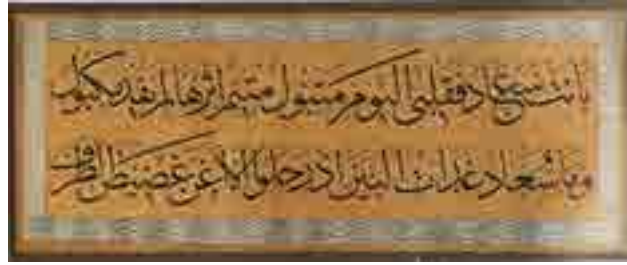 بانت سعاد فقلبي اليوم متبول متيم اثرها لم يفد مكبول
وما سعاد غدات البين اذ رحلوا الا اغن غضيض الطرف